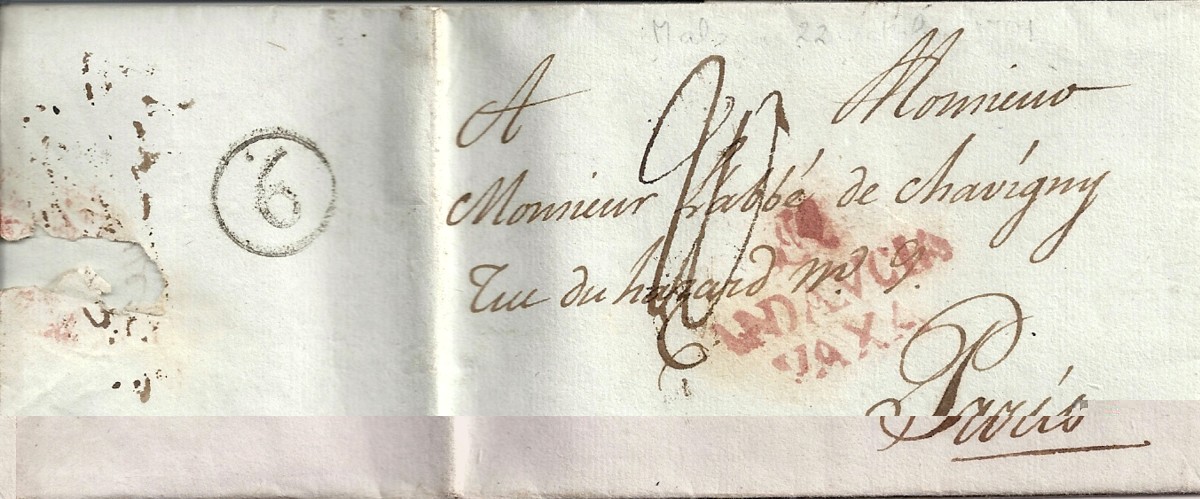 A Monsieur
Monsieur L'abbé de chavigny
rue du hazard nº. 9.
Paris
6
ANDALUCIA
BAXA